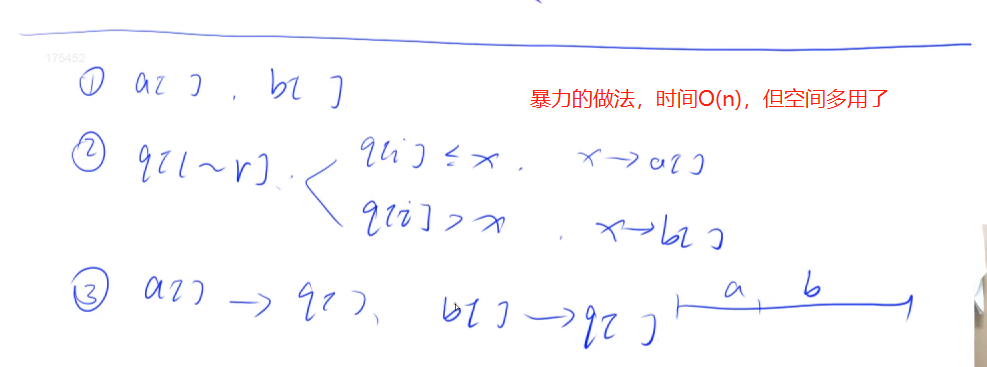 175452
① a[ ] , b[ ]
暴力的做法，时间O(n)，但空间多用了
② q[l~r]. q[i] ≤ x. x→a[ ]
q[i] > x . x→b[ ]
③ a[ ] → q[ ], b[ ] → q[ ] a b